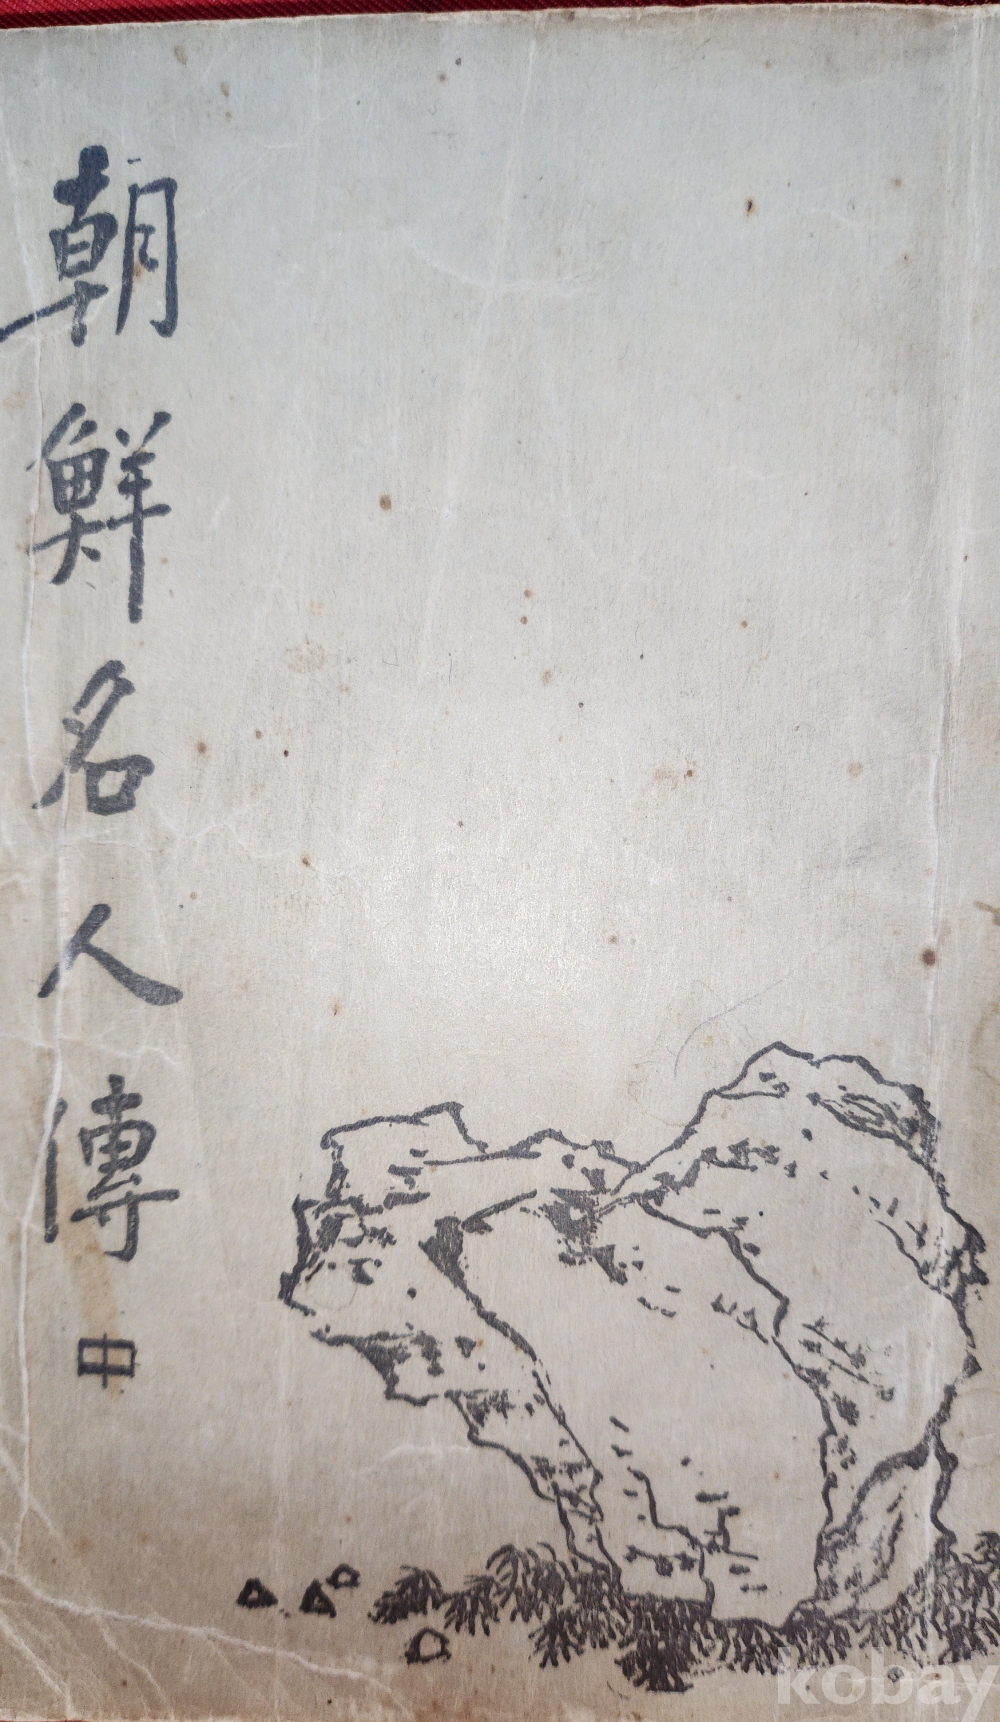 朝鮮名人傳
中
kobay